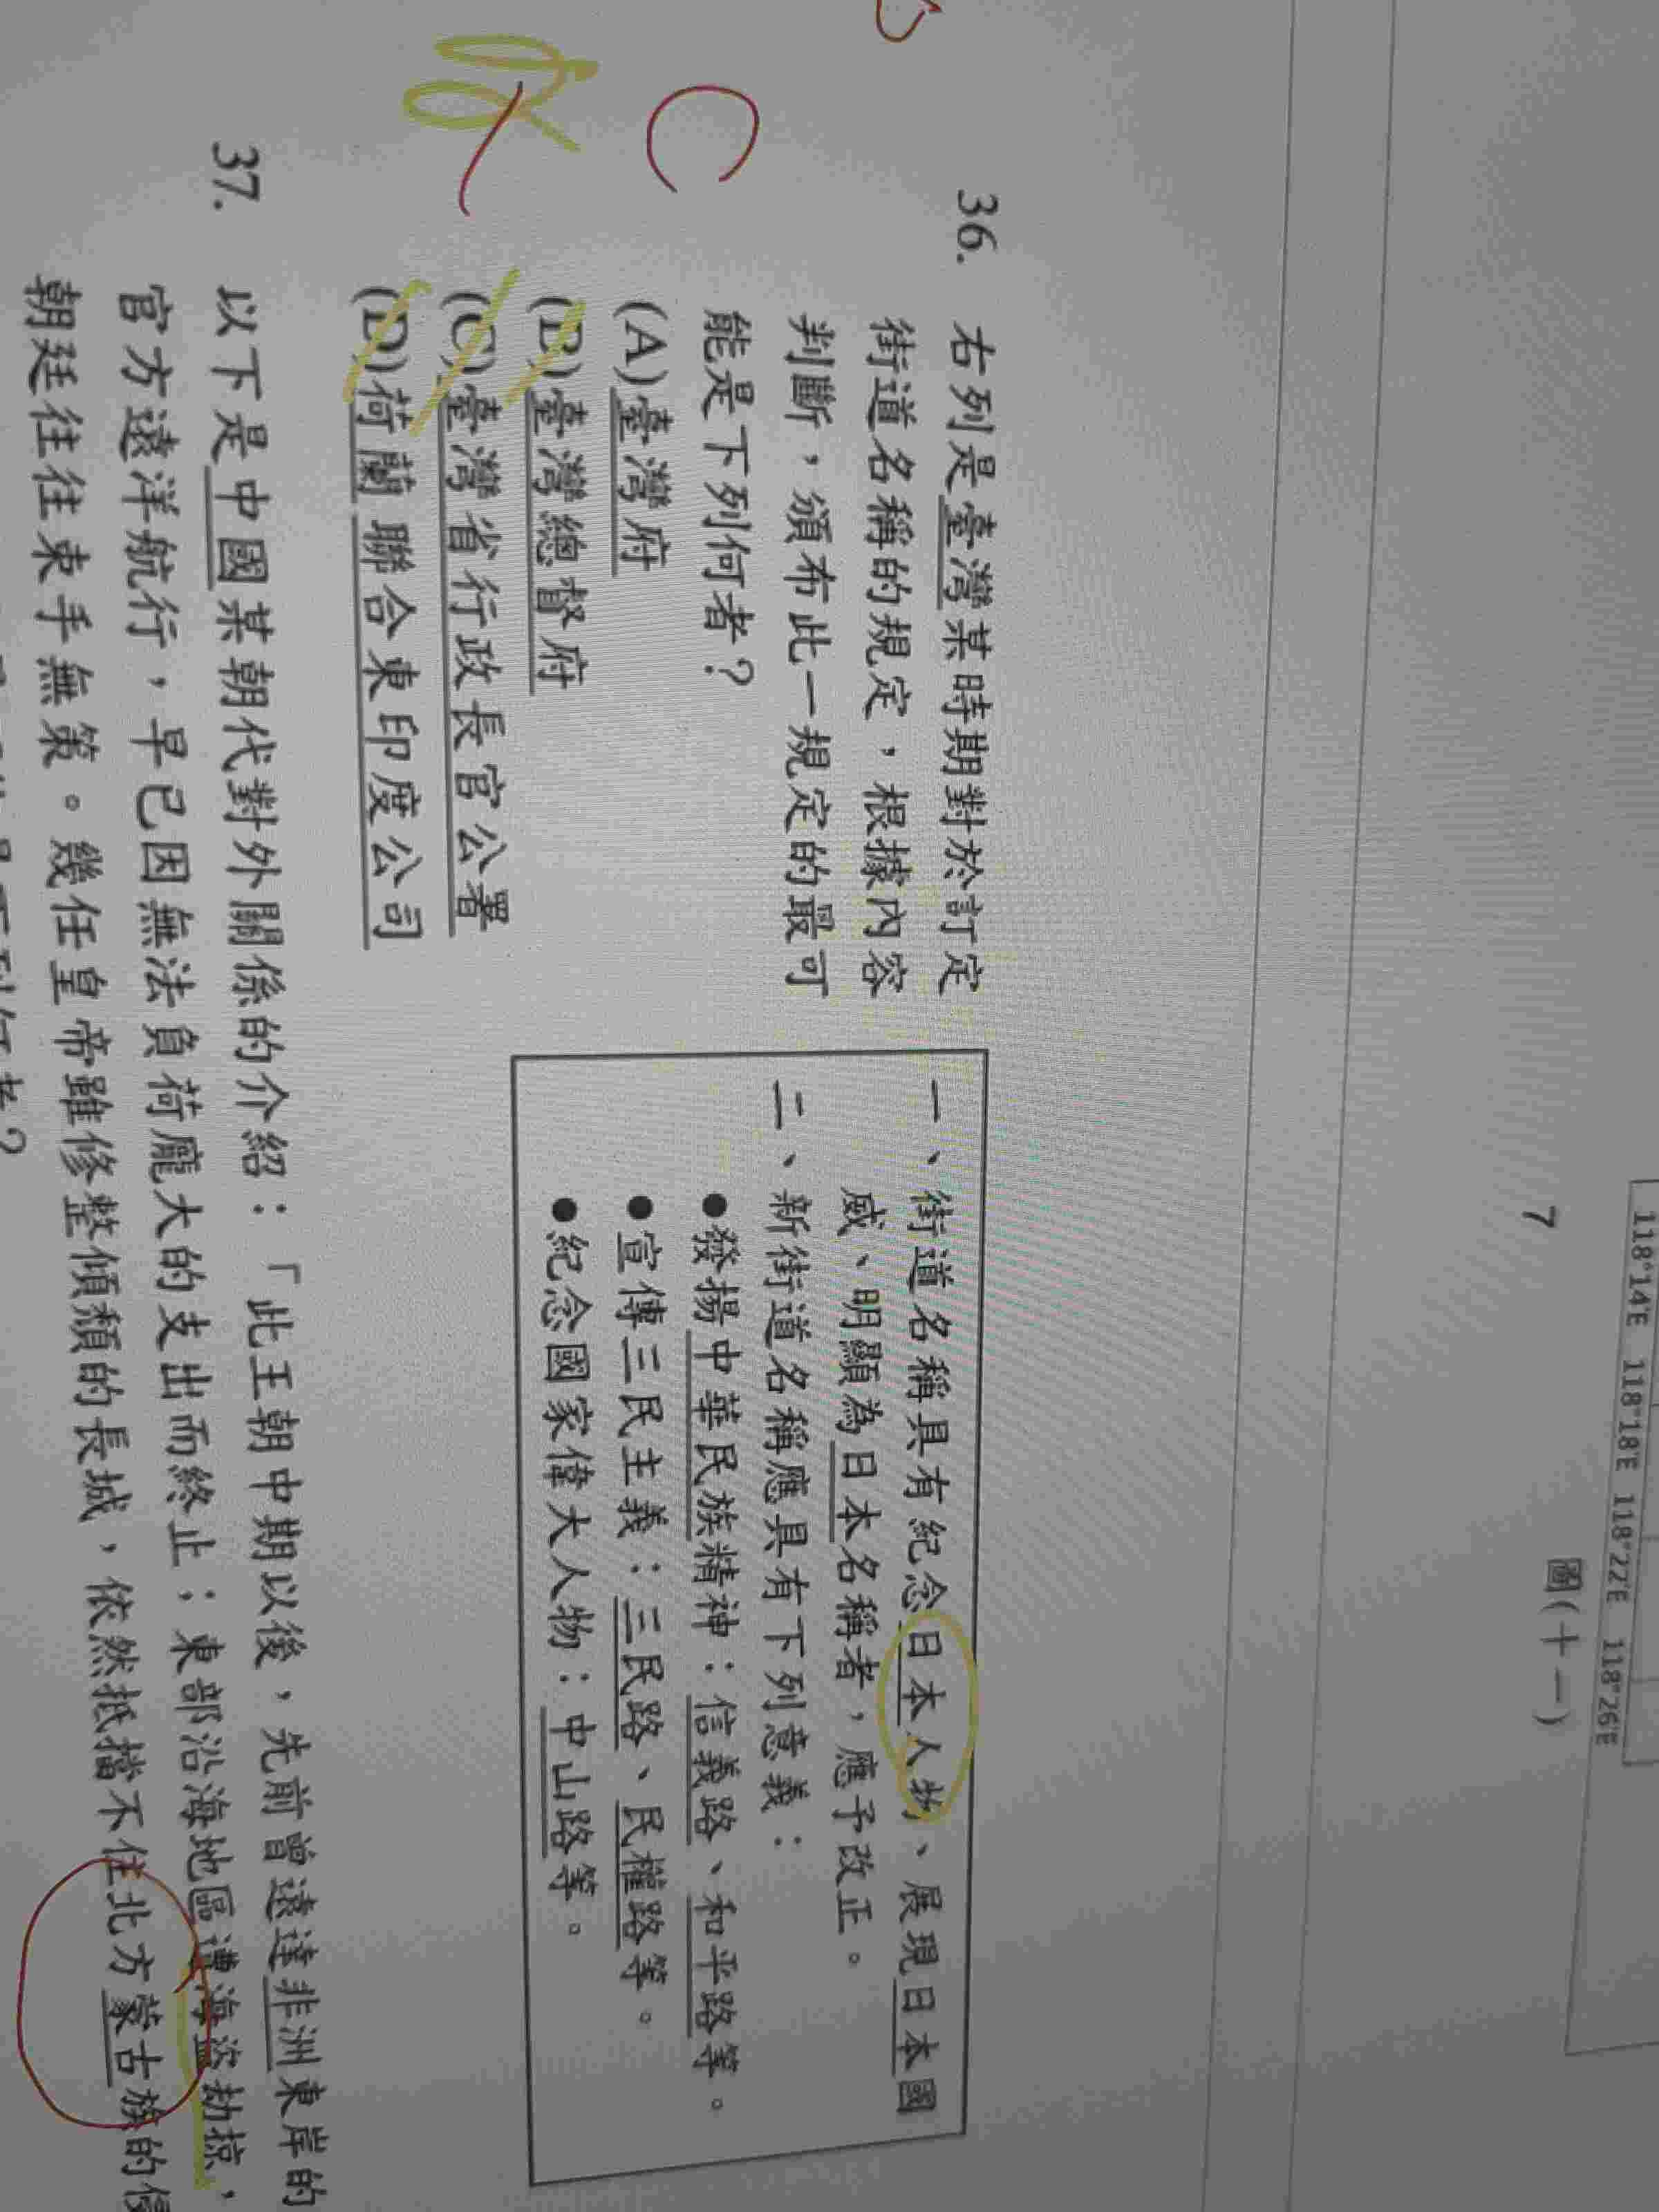 118°14'E 118°18'E 118°22'E 118°26'E
7
國(十一)
36. 右列是臺灣某時期對於訂定
街道名稱的規定，根據內容
判斷，頒布此一規定的最可
能是下列何者？
(A)臺灣府
(B)臺灣總督府
(C)臺灣省行政長官公署
(D)荷蘭聯合東印度公司
一、街道名稱具有紀念日本人物、展現日本國
威、明顯為日本名稱者，應予改正。
二、新街道名稱應具有下列意義：
●發揚中華民族精神：信義路、和平路等。
●宣傳三民主義：三民路、民權路等。
●紀念國家偉大人物：中山路等。
C
37. 以下是中國某朝代對外關係的介紹：「此王朝中期以後，先前曾遠達非洲東岸的
官方遠洋航行，早已因無法負荷龐大的支出而終止；東部沿海地區遭海盜劫掠，
朝廷往往束手無策。幾任皇帝雖修整傾頹的長城，依然抵擋不住北方蒙古族的侵